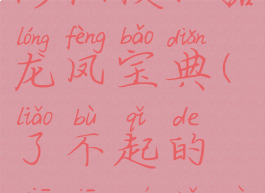 lóng fèng bǎo diǎn
龙凤宝典(
liǎo bù qǐ de
了不起的